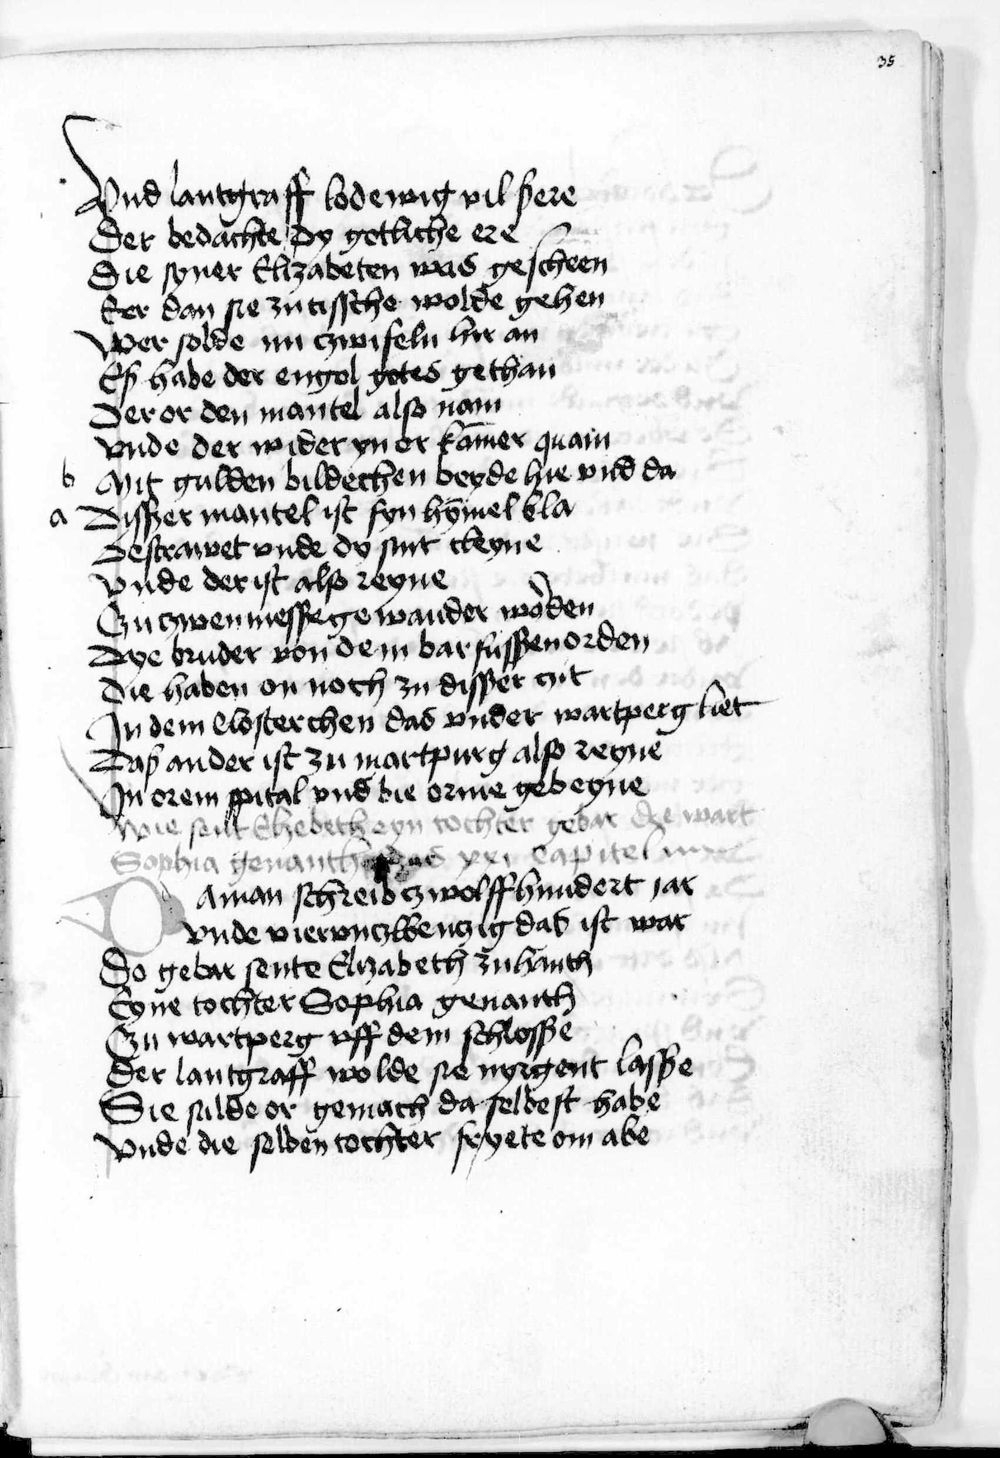 35
Vnd lantgraff lodewig vil sere
Der bedachte dy gotliche ere
Die syner Elizabeten was gescheen
Eer dan sie zu tissche wolde gehen
Wer solde nu czwifeln hir an
Eß habe der engel gotes gethan
Der or den mantel also nam
Vnde der wider yn or kamer quam
b Mit gulden bildechen beyde hie vnd da
a Disser mantel ist fyn hymel bla
Bestrawet vnde dy sint cleyne
Vnde der ist also reyne
Czu czwen messegewander worden
Dye bruder von dem barfussen orden
Die haben on noch zu disser czit
In dem closterchen das vnder wartperg liet
Daß ander ist zu martpurg also reyne
In orem spital vnd bie orme gebeyne
Wie sent Elzebeth eyn tochter gebar die wart
Sophia genanth das xxi Capitel
Da man schreib czwolffhundert jar
Vnde viervnczwenczig das ist war
Do gebar sente Elizabeth zuhanth
Eyne tochter Sophia genanth
Czu wartperg vff dem schlosse
Der lantgraff wolde sie nyrgent lasse
Sie sulde or gemach da selbest habe
Vnde die selben tochter fryete om abe